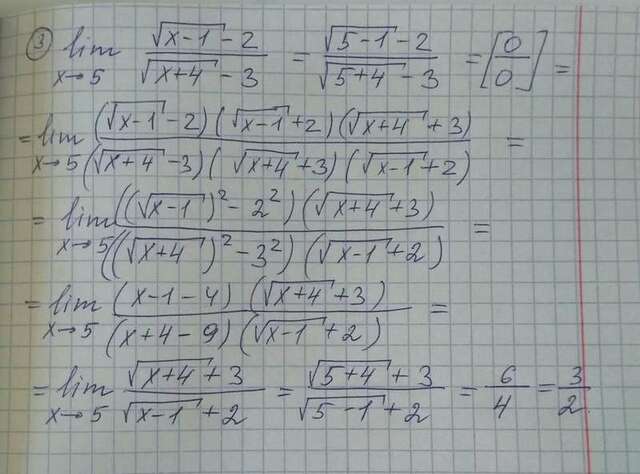 ③ lim x→5 (√(x-1) - 2)/(√(x+4) - 3) = (√(5-1) - 2)/(√(5+4) - 3) = [0/0] =
= lim x→5 ((√(x-1) - 2)(√(x-1) + 2)(√(x+4) + 3))/((√(x+4) - 3)(√(x+4) + 3)(√(x-1) + 2)) =
= lim x→5 (((√(x-1))² - 2²)(√(x+4) + 3))/(((√(x+4))² - 3²)(√(x-1) + 2)) =
= lim x→5 ((x-1-4)(√(x+4) + 3))/((x+4-9)(√(x-1) + 2)) =
= lim x→5 (√(x+4) + 3)/(√(x-1) + 2) = (√(5+4) + 3)/(√(5-1) + 2) = 6/4 = 3/2